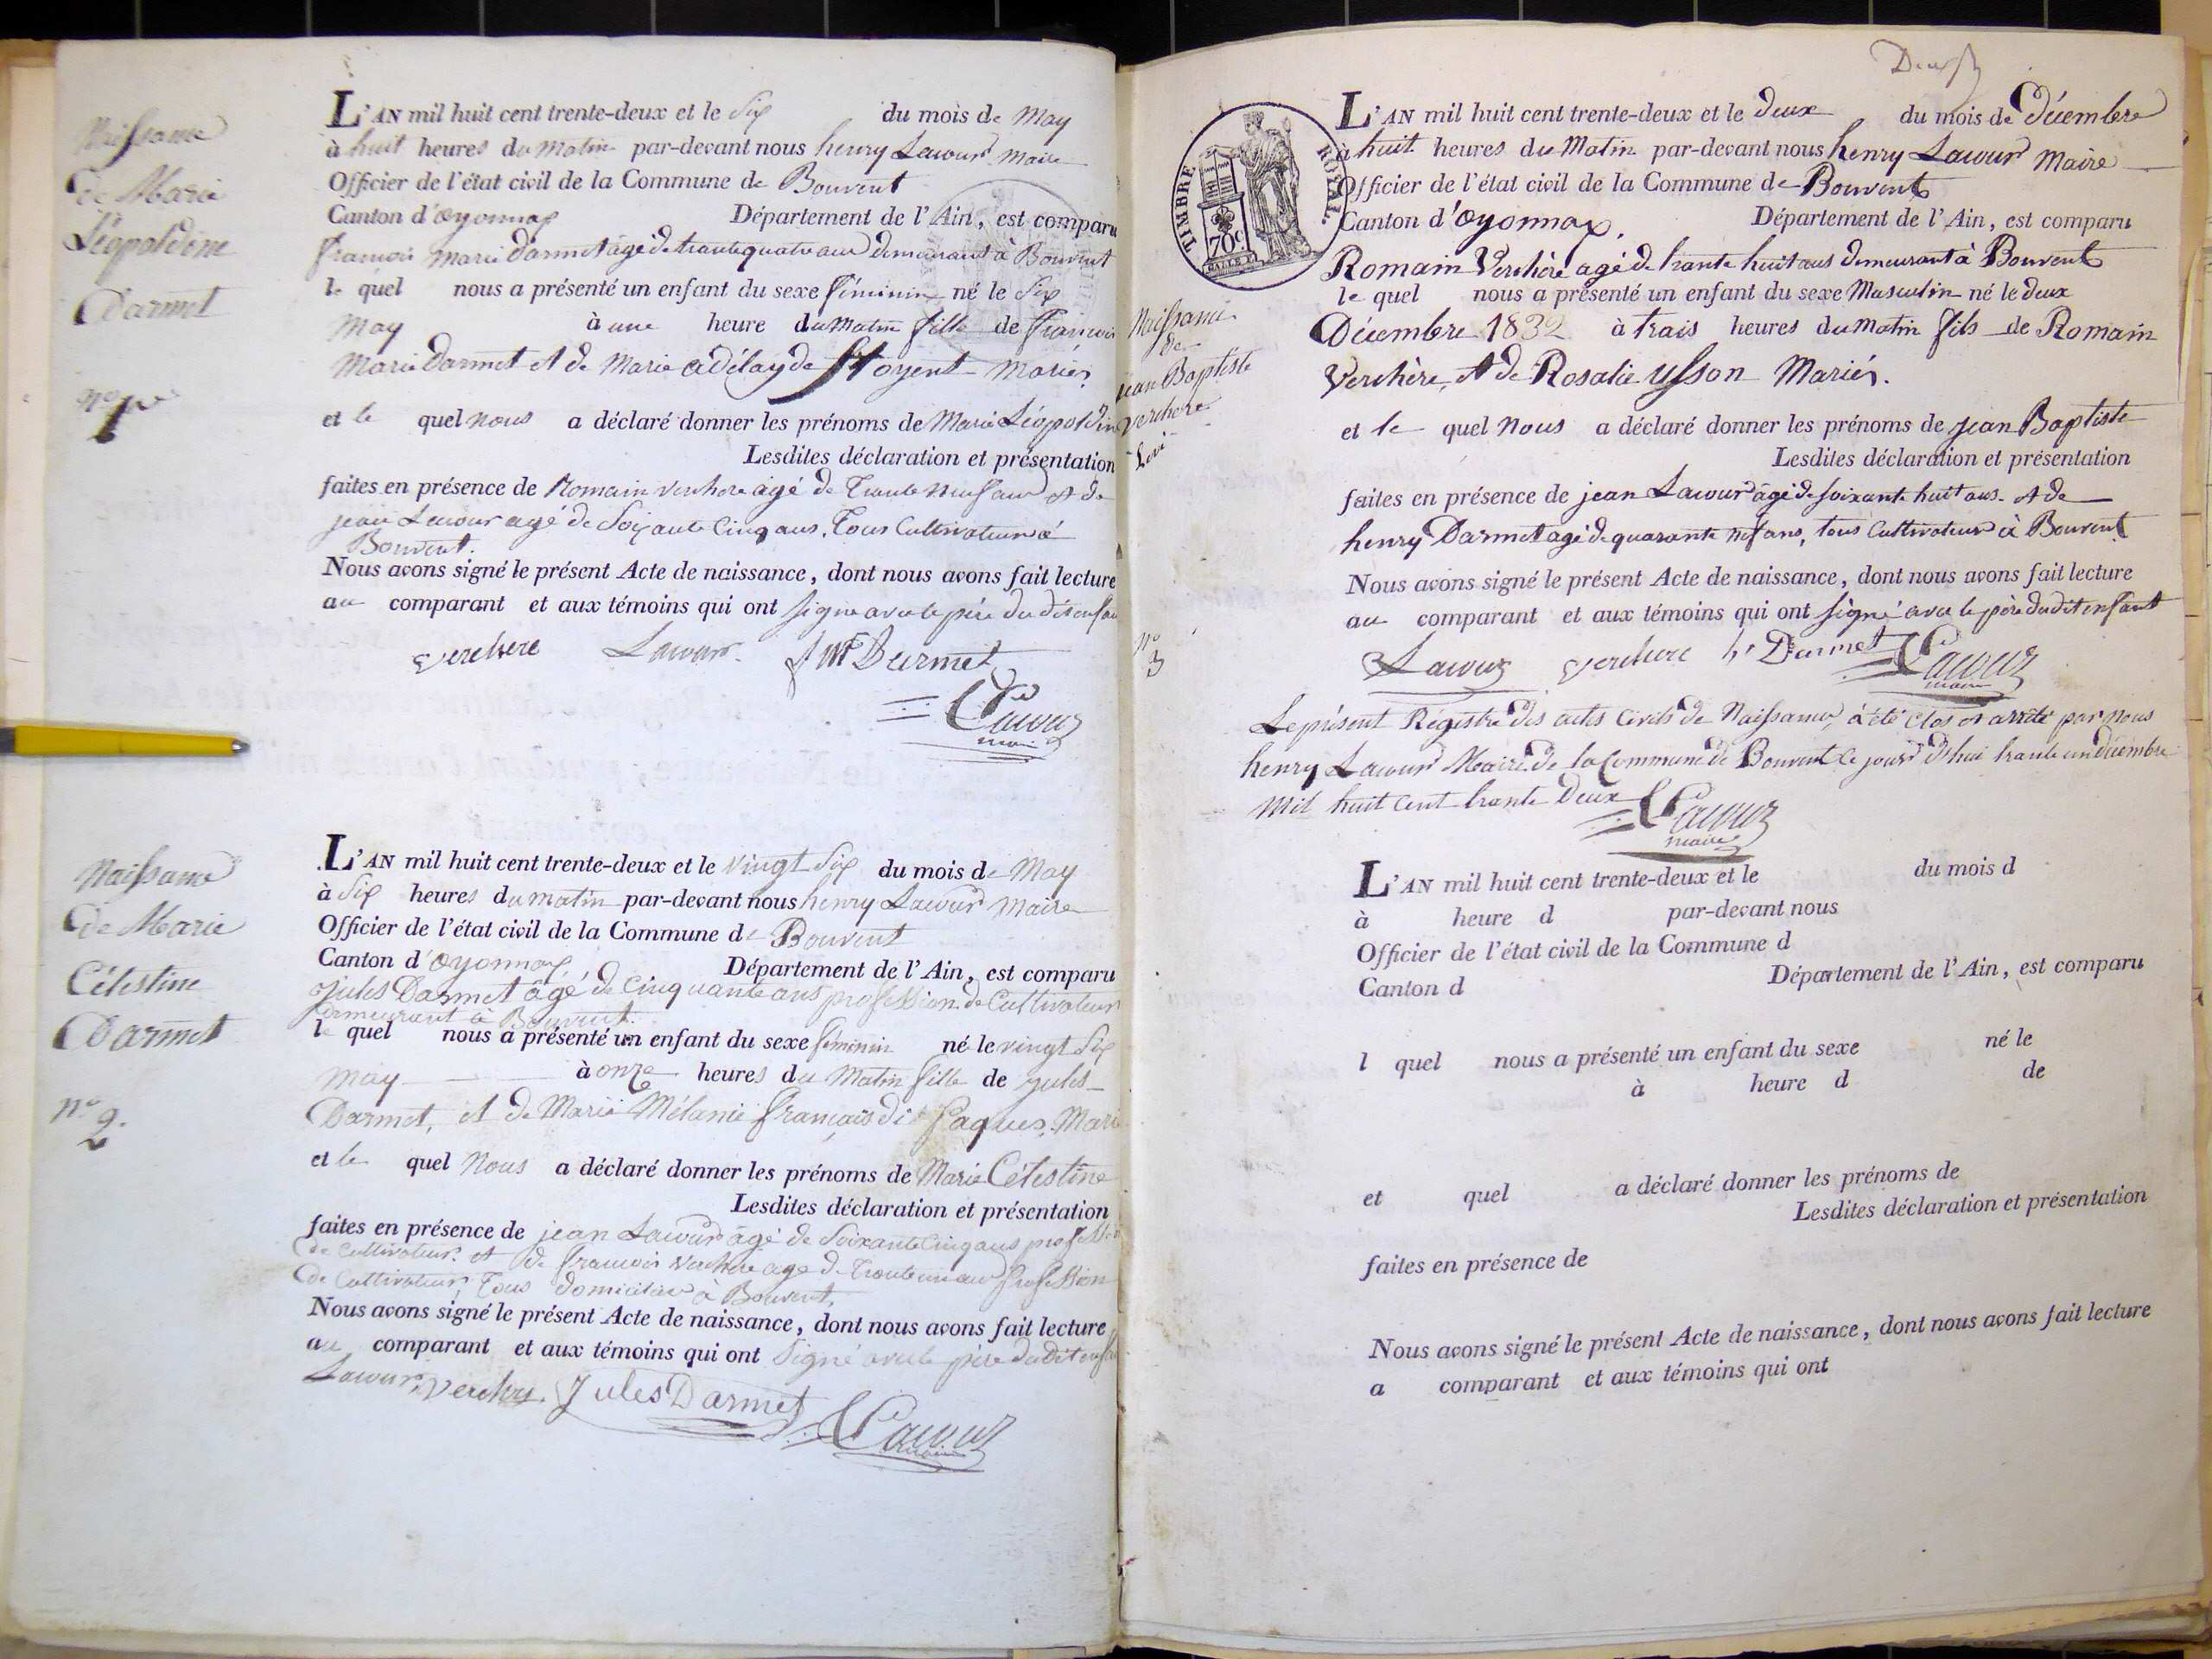 Naissance
de Marie
Léopoldine
Darmet
No 1er
L'AN mil huit cent trente-deux et le Six du mois de May
à huit heures du Matin par-devant nous henry Lacour Maire
Officier de l'état civil de la Commune de Bouvent
Canton d'oyonnax Département de l'Ain, est comparu
francois marie Darmet âgé de trante quatre ans demeurant à Bouvent
le quel nous a présenté un enfant du sexe féminin né le Six
May à une heure du Matin fille de francois
Marie Darmet et de Marie adélayde Mariés
et le quel nous a déclaré donner les prénoms de Marie Léopoldine
Lesdites déclaration et présentation
faites en présence de Romain verchere âgé de Trante neuf ans et de
jean Lacour agé de Soixante Cinq ans, Tous Cultivateurs à
Bouvent.
Nous avons signé le présent Acte de naissance, dont nous avons fait lecture
au comparant et aux témoins qui ont signé avec le père du dit enfant
verchere Lacour f M Darmet
Lacour
maire
Naissance
de Marie
Célestine
Darmet
No 2.
L'AN mil huit cent trente-deux et le vingt Six du mois de May
à Six heures du matin par-devant nous henry Lacour Maire
Officier de l'état civil de la Commune de Bouvent
Canton d'oyonnax Département de l'Ain, est comparu
jules Darmet âgé de Cinquante ans profession de Cultivateur
demeurant à Bouvent.
le quel nous a présenté un enfant du sexe féminin né le vingt Six
May à onze heures du Matin fille de jules
Darmet, et de Marie Mélanie français dit Paques, Marié
et le quel nous a déclaré donner les prénoms de Marie Célestine
Lesdites déclaration et présentation
faites en présence de jean Lacour âgé de Soixante Cinq ans profession
de Cultivateur. et de francois verchere age de Trante un ans profession
de Cultivateur, Tous domiciliés à Bouvent,
Nous avons signé le présent Acte de naissance, dont nous avons fait lecture
au comparant et aux témoins qui ont Signé avec le père dudit enfant
Lacour, verchere. Jules Darmet
Lacour
maire
TIMBRE ROYAL.
70c
L'AN mil huit cent trente-deux et le deux du mois de décembre
à huit heures du Matin par-devant nous henry Lacour Maire
Officier de l'état civil de la Commune de Bouvent
Canton d'oyonnax, Département de l'Ain, est comparu
Romain Verchère agé de trante huit ans demeurant à Bouvent
le quel nous a présenté un enfant du sexe Masculin né le deux
Décembre 1832 à trais heures du Matin fils de Romain
Verchère, et de Rosalie usson Mariés.
Naissance
de
jean Baptiste
verchere
No
3
et le quel nous a déclaré donner les prénoms de jean Baptiste
Lesdites déclaration et présentation
faites en présence de jean Lacour âgé de soixante huit ans. et de
henry Darmet agé de quarante nef ans, tous Cultivateurs à Bouvent
Nous avons signé le présent Acte de naissance, dont nous avons fait lecture
au comparant et aux témoins qui ont signé avec le père dudit enfant
Lacour verchere h Darmet Lacour
maire
Le présent Régistre des actes Civils de Naissance, à été clos et arrêté par nous
henry Lacour Maire de la Commune de Bouvent le jourd'hui trante un décembre
Mil huit Cent trante Deux Lacour
maire
L'AN mil huit cent trente-deux et le du mois d
à heure d par-devant nous
Officier de l'état civil de la Commune d
Canton d Département de l'Ain, est comparu
l quel nous a présenté un enfant du sexe né le
à heure d de
et quel a déclaré donner les prénoms de
Lesdites déclaration et présentation
faites en présence de
Nous avons signé le présent Acte de naissance, dont nous avons fait lecture
a comparant et aux témoins qui ont